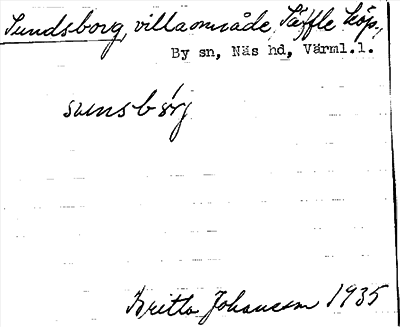 Sundsborg, villaområde, Säffle köp.,
By sn, Näs hd, Värml.l.
sunsbórj
Britta Johansson 1935